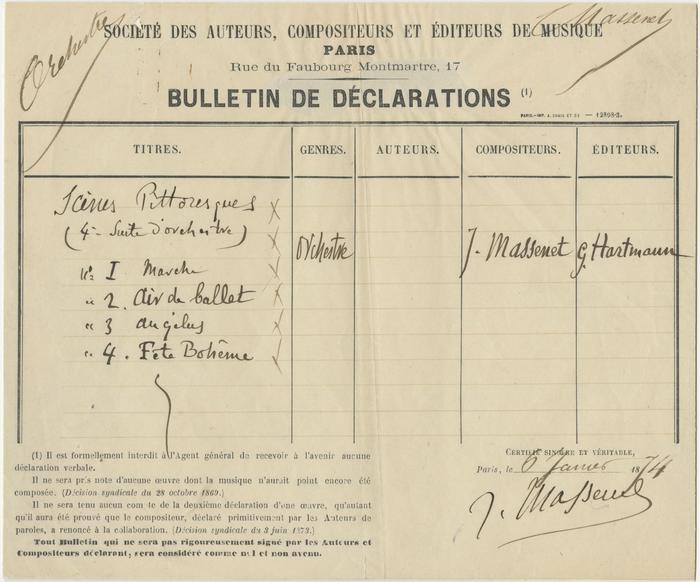 Orchestre
J. Massenet
SOCIÉTÉ DES AUTEURS, COMPOSITEURS ET ÉDITEURS DE MUSIQUE
PARIS
Rue du Faubourg Montmartre, 17
BULLETIN DE DÉCLARATIONS (1)
PARIS.—IMP. A. CHAIX ET Cie — 12898-3.
TITRES. GENRES. AUTEURS. COMPOSITEURS. ÉDITEURS.
Scènes Pittoresques
(4e Suite d'orchestre) Orchestre J. Massenet G. Hartmann
No I Marche
" 2. Air de ballet
" 3 angélus
" 4. Fête Bohême
(1) Il est formellement interdit à l'Agent général de recevoir à l'avenir aucune
déclaration verbale.
Il ne sera pris note d'aucune œuvre dont la musique n'aurait point encore été
composée. (Décision syndicale du 28 octobre 1869.)
Il ne sera tenu aucun compte de la deuxième déclaration d'une œuvre, qu'autant
qu'il aura été prouvé que le compositeur, déclaré primitivement par les Auteurs de
paroles, a renoncé à la collaboration. (Décision syndicale du 3 juin 1873.)
Tout Bulletin qui ne sera pas rigoureusement signé par les Auteurs et
Compositeurs déclarant, sera considéré comme nul et non avenu.
CERTIFIÉ SINCÈRE ET VÉRITABLE,
Paris, le 6 Janvier 1874
J. Massenet